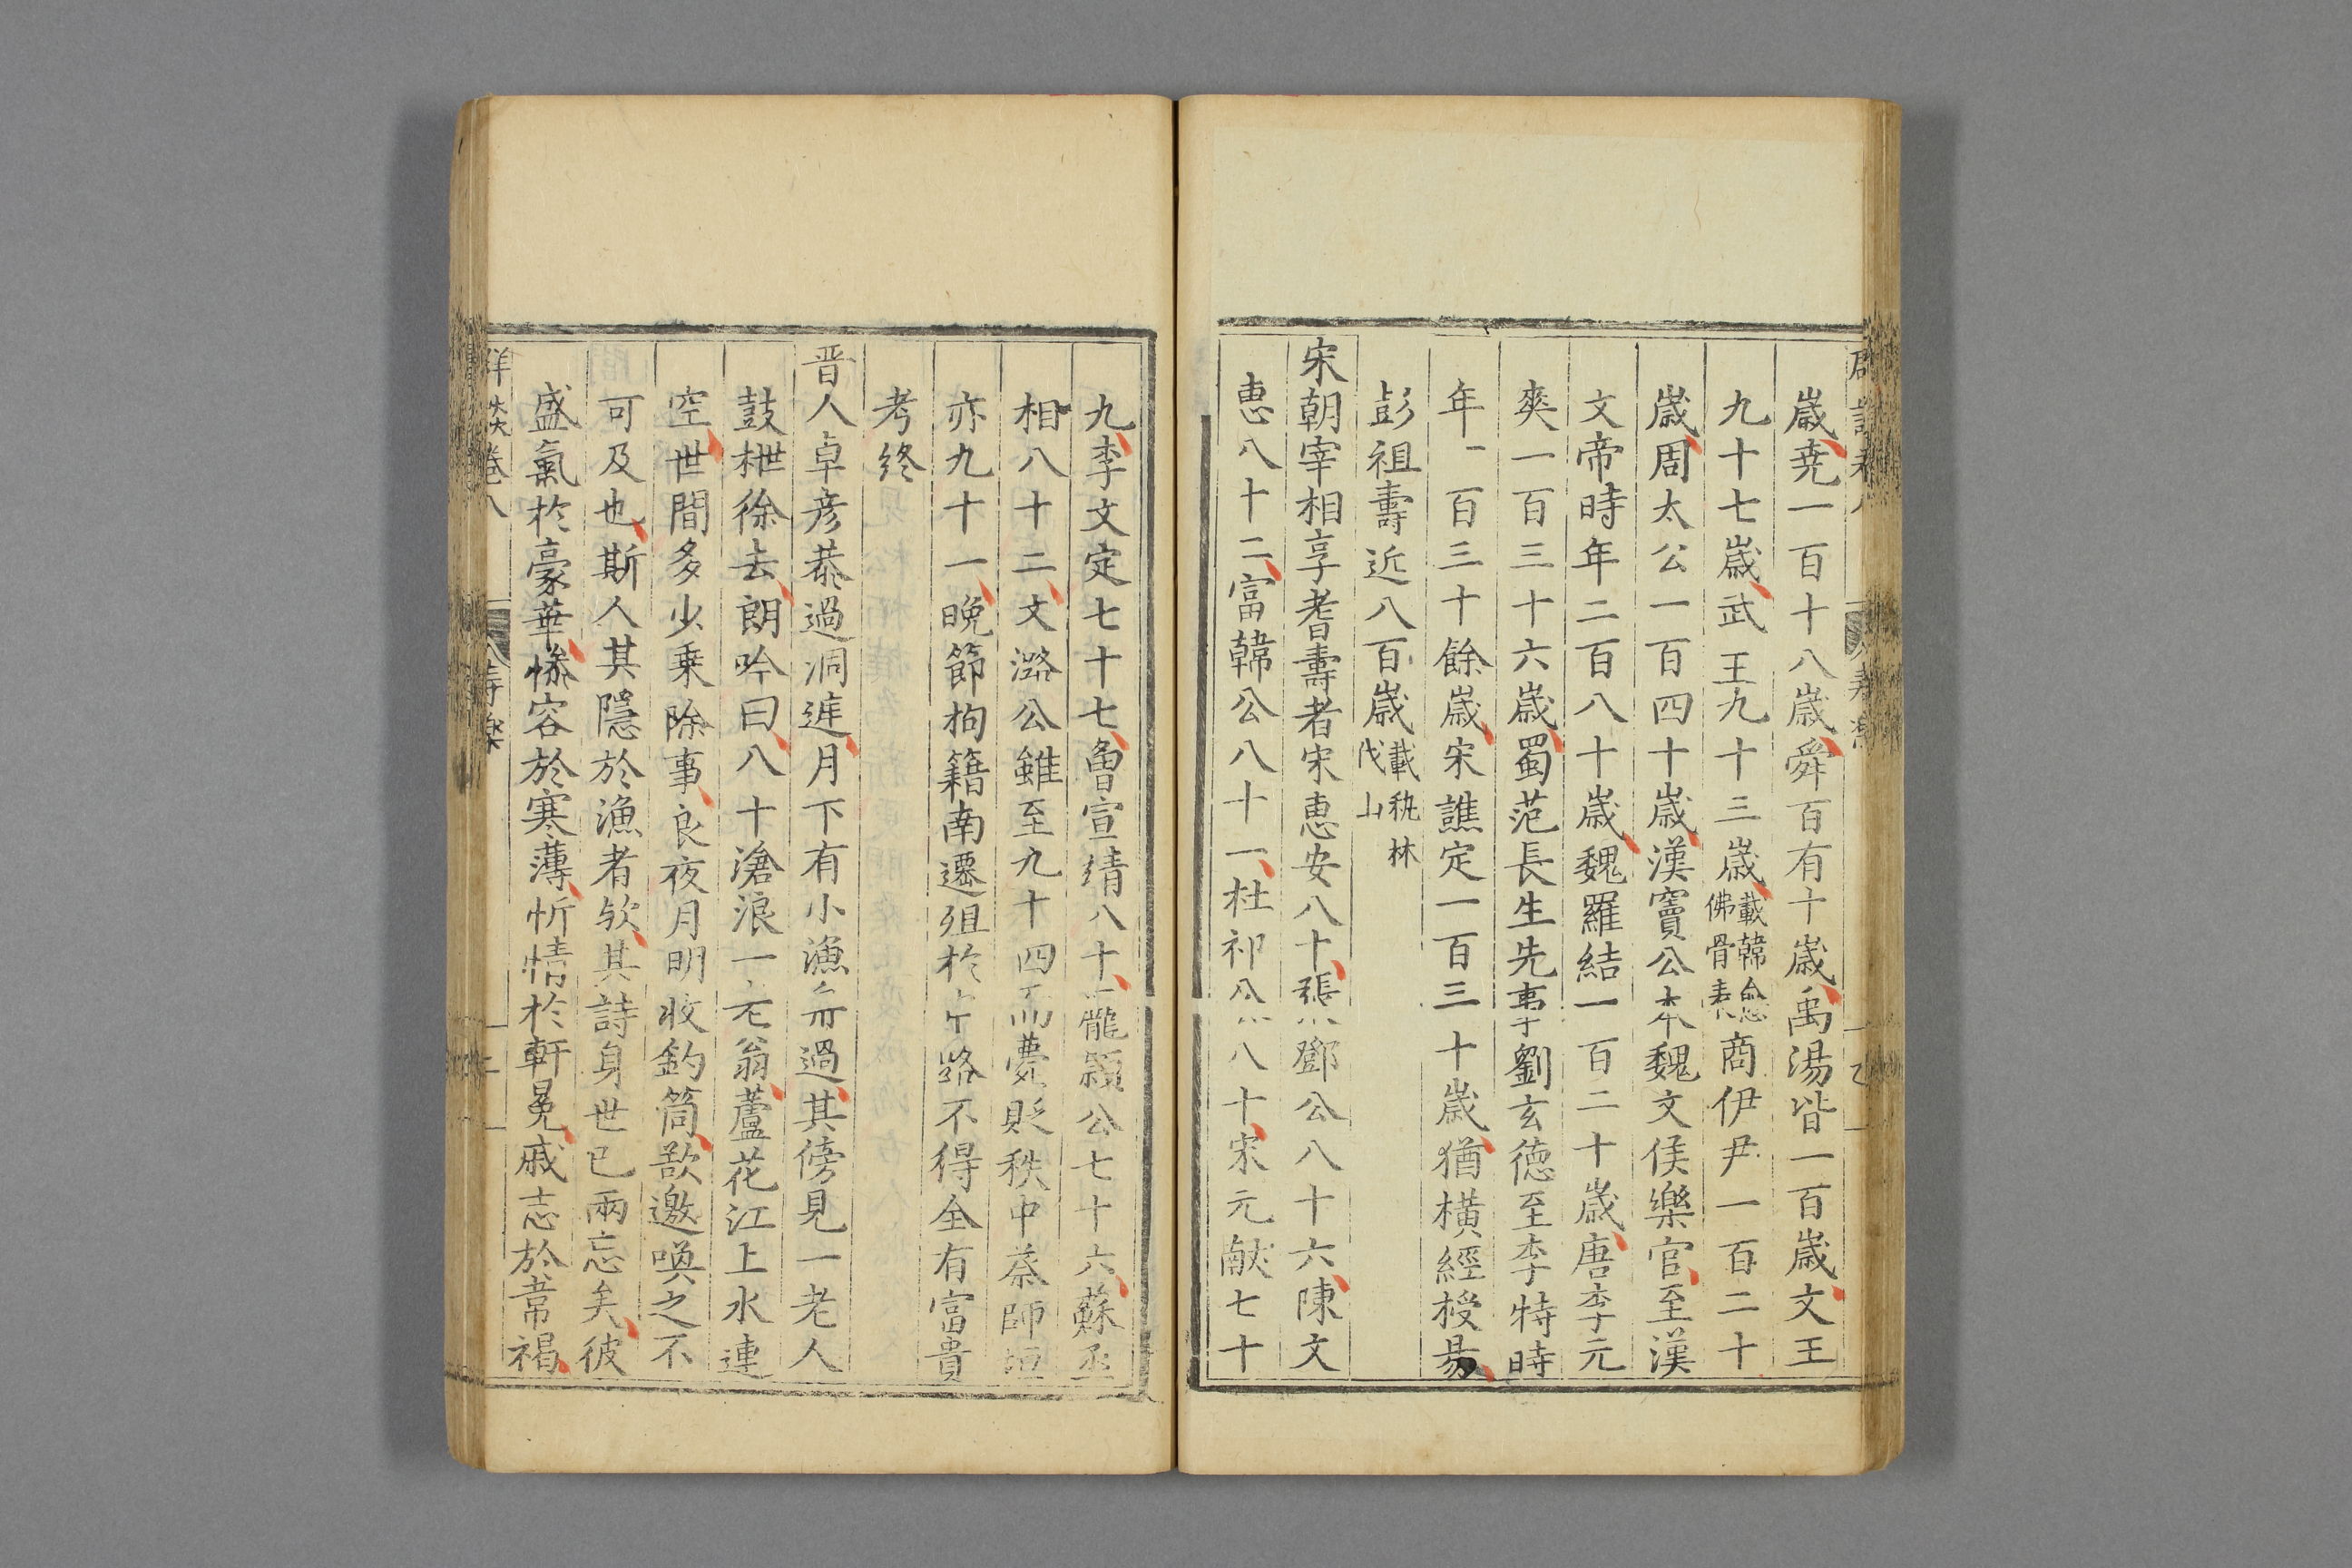 歲堯一百十八歲舜百有十歲禹湯皆一百歲文王
九十七歲武王九十三歲載韓愈佛骨表商伊尹一百二十
歲周太公一百四十歲漢竇公本魏文侯樂官至漢
文帝時年二百八十歲魏羅結一百二十歲唐李元
爽一百三十六歲蜀范長生先事劉玄德至李特時
年一百三十餘歲宋譙定一百三十歲猶橫經授易
彭祖壽近八百歲載秇林伐山
宋朝宰相享耆壽者宋惠安八十張鄧公八十六陳文
惠八十二富韓公八十一杜祁公八十宋元獻七十
九李文定七十七魯宣靖八十龐潁公七十六蘇丞
相八十二文潞公雖至九十四而薨貶秩中蔡師垣
亦九十一晚節拘籍南遷殂於路不得全有富貴
考終
晋人卓彦恭過洞庭月下有小漁舟過其傍見一老人
鼓枻徐去朗吟曰八十滄浪一老翁蘆花江上水連
空世間多少乗除事良夜月明收釣筒歆邀喚之不
可及也斯人其隱於漁者欤其詩身世已兩忘矣彼
盛氣於豪華慘容於寒薄忻情於軒冕戚志於韋褐
卷八 壽樂